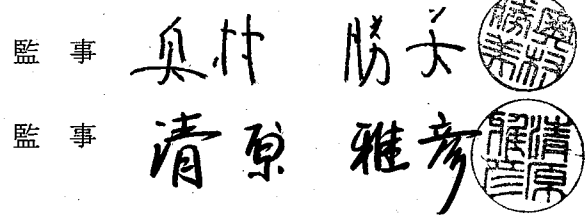 監事 奥村 勝美 奥村勝美
監事 清原 雅彦 清原雅彦